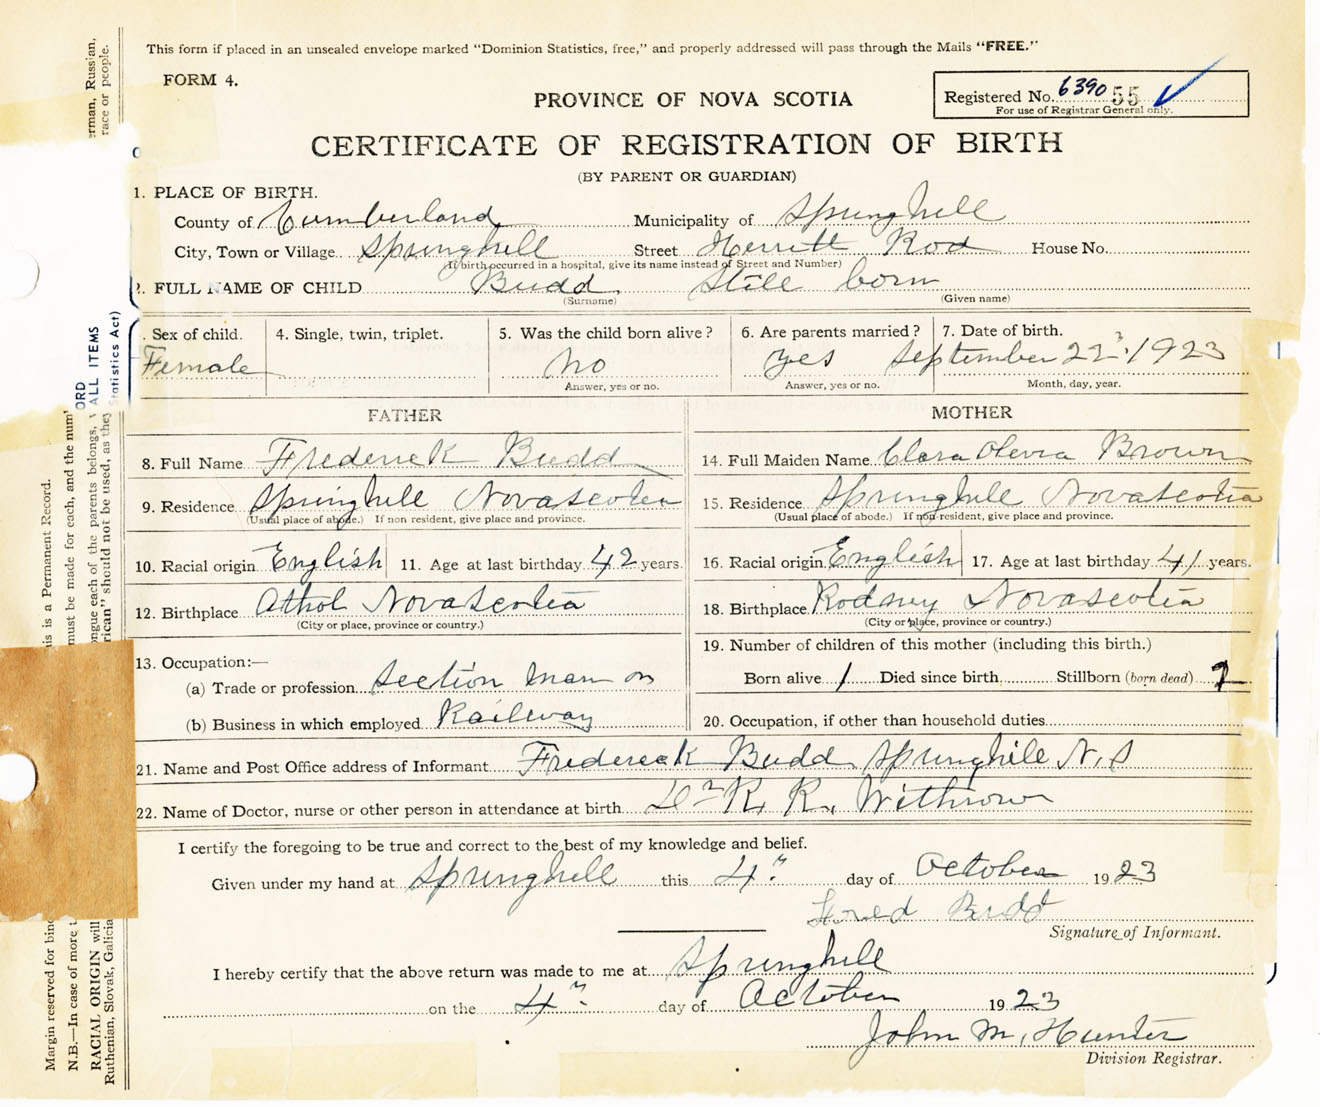 This form if placed in an unsealed envelope marked "Dominion Statistics, free," and properly addressed will pass through the Mails "FREE."
FORM 4.
Registered No. 6390 55
For use of Registrar General only.
PROVINCE OF NOVA SCOTIA
CERTIFICATE OF REGISTRATION OF BIRTH
(BY PARENT OR GUARDIAN)
1. PLACE OF BIRTH.
County of Cumberland Municipality of Springhill
City, Town or Village Springhill Street Herritt Rod House No.
(If birth occurred in a hospital, give its name instead of Street and Number)
2. FULL NAME OF CHILD Budd Still born
(Surname) (Given name)
. Sex of child. 4. Single, twin, triplet. 5. Was the child born alive? 6. Are parents married? 7. Date of birth.
Female No yes September 22, 1923
Answer, yes or no. Answer, yes or no. Month, day, year.
FATHER MOTHER
8. Full Name Frederick Budd 14. Full Maiden Name Clara Olevia Brown
9. Residence Springhill Novascotia 15. Residence Springhill Novascotia
(Usual place of abode.) If non resident, give place and province. (Usual place of abode.) If non-resident, give place and province.
10. Racial origin English 11. Age at last birthday 42 years. 16. Racial origin English 17. Age at last birthday 41 years.
12. Birthplace Athol Novascotia 18. Birthplace Rodney Novascotia
(City or place, province or country.) (City or place, province or country.)
13. Occupation:— 19. Number of children of this mother (including this birth.)
(a) Trade or profession Section man on Born alive 1 Died since birth Stillborn (born dead)
(b) Business in which employed Railway 20. Occupation, if other than household duties
21. Name and Post Office address of Informant Frederick Budd Springhill N.S
22. Name of Doctor, nurse or other person in attendance at birth Dr R. R. Withrow
I certify the foregoing to be true and correct to the best of my knowledge and belief.
Given under my hand at Springhill this 4 day of October 1923
Fred Budd
Signature of Informant.
I hereby certify that the above return was made to me at Springhill
on the 4 day of October 1923
John M. Hunter
Division Registrar.
Margin reserved for
his is a Permanent Record.
N.B.—In case of more
must be made for each, and the num
RACIAL ORIGIN will
ongue each of the parents belongs,
erman, Russian,
Ruthenian, Slovak, Galicia
rican" should not be used, as they
race or people.
ORD
ALL ITEMS
Statistics Act)